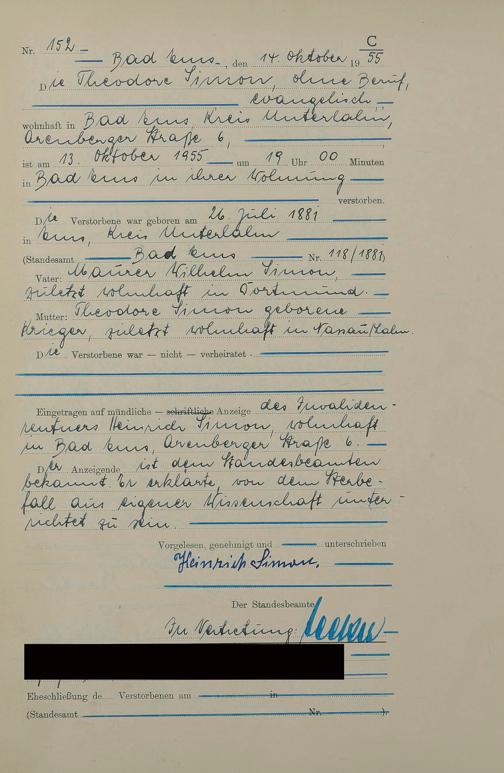 C
Nr. 152
Bad Ems, den 14. Oktober 19 55
Die Theodore Simon, ohne Beruf,
evangelisch
wohnhaft in Bad Ems, Kreis Unterlahn,
Arenberger Straße 6,
ist am 13. Oktober 1955 um 19 Uhr 00 Minuten
in Bad Ems in ihrer Wohnung
verstorben.
Die Verstorbene war geboren am 26. Juli 1881
in Ems, Kreis Unterlahn
(Standesamt Bad Ems Nr. 118/1881)
Vater: Maurer Wilhelm Simon,
zuletzt wohnhaft in Dortmund.
Mutter: Theodore Simon geborene
Krieger, zuletzt wohnhaft in Nassau/Lahn.
Die Verstorbene war — nicht — verheiratet
Eingetragen auf mündliche — schriftliche Anzeige des Invaliden-
rentners Heinrich Simon, wohnhaft
in Bad Ems, Arenberger Straße 6.
Der Anzeigende ist dem Standesbeamten
bekannt. Er erklärte, von dem Sterbe-
fall aus eigener Wissenschaft unter-
richtet zu sein.
Vorgelesen, genehmigt und unterschrieben
Heinrich Simon.
Der Standesbeamte
In Vertretung:
Eheschließung de Verstorbenen am in
(Standesamt Nr. ).